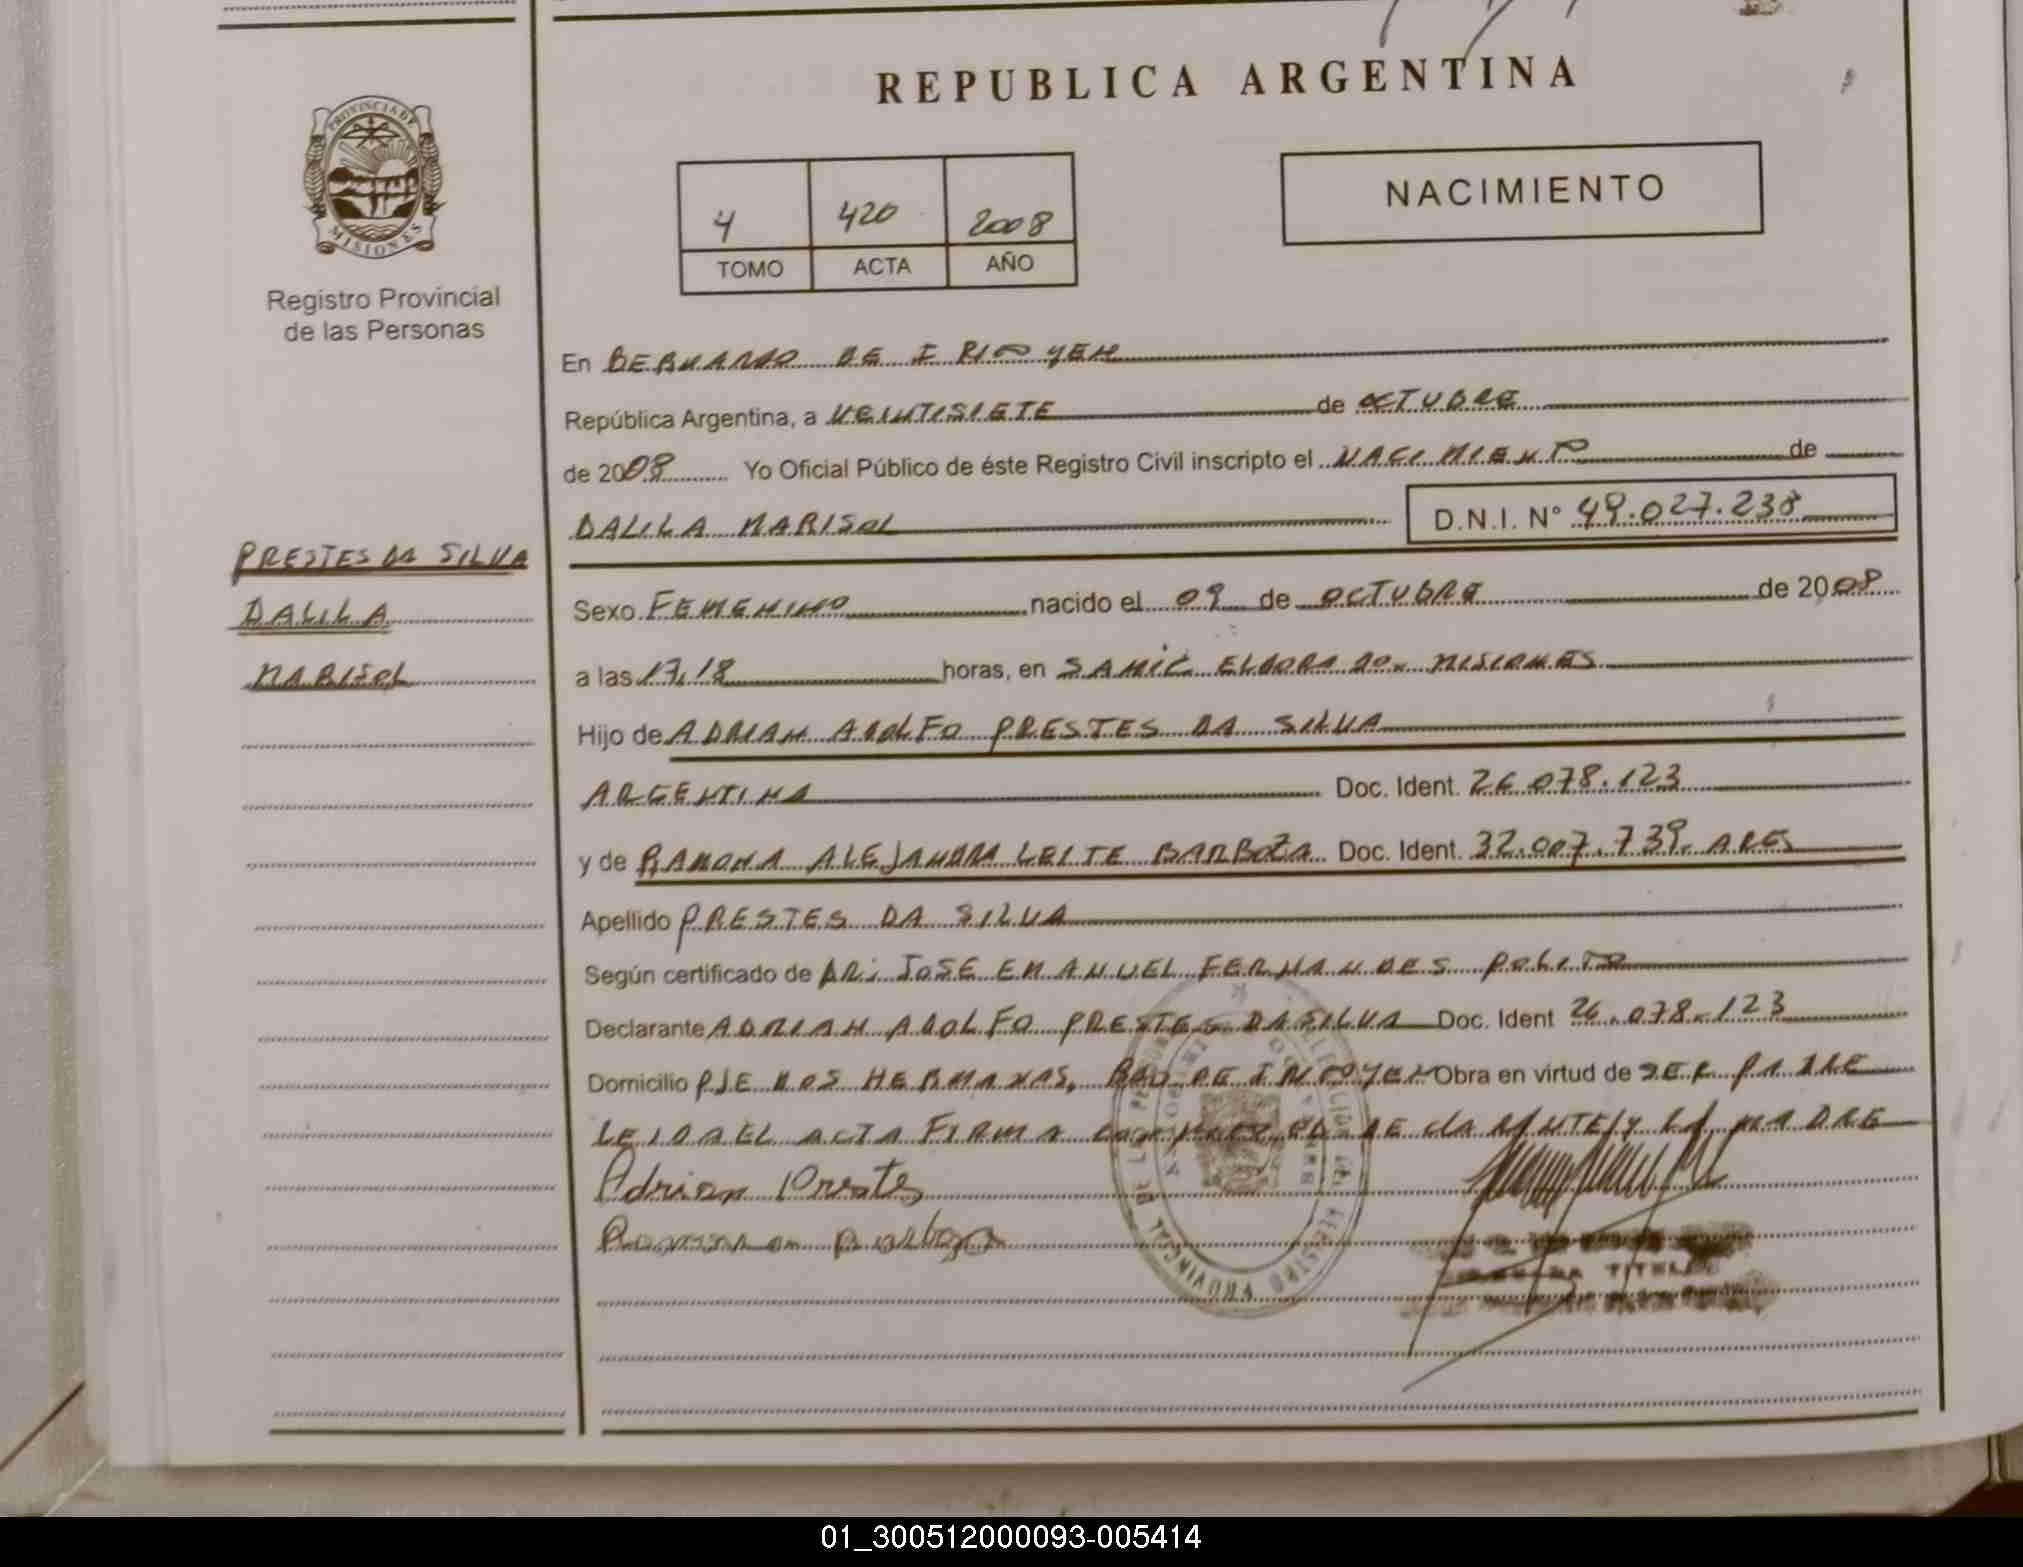 REPUBLICA ARGENTINA
PROVINCIA DE
MISIONES
Registro Provincial
de las Personas
4 420 2008
TOMO ACTA AÑO
NACIMIENTO
En BERNARDO DE IRIGOYEN
República Argentina, a VEINTISIETE de OCTUBRE
de 2008 Yo Oficial Público de éste Registro Civil inscripto el NACIMIENTO de
DALILA MARISOL D.N.I. N° 49.027.238
PRESTES DA SILVA
DALILA
MARISOL
Sexo FEMENINO nacido el 09 de OCTUBRE de 2008
a las 17,18 horas, en SAMIC ELDORADO. MISIONES
Hijo de ADRIAN ADOLFO PRESTES DA SILVA
ARGENTINA Doc. Ident. 26.078.123
y de RAMONA ALEJANDRA LEITE BARBOZA Doc. Ident. 32.007.739. ARG
Apellido PRESTES DA SILVA
Según certificado de DR: JOSE EMANUEL FERNANDES POLITO
Declarante ADRIAN ADOLFO PRESTES DA SILVA Doc. Ident 26.078.123
Domicilio PJE DOS HERMANAS, BDO DE IRIGOYEN Obra en virtud de SER PADRE
LEIDA EL ACTA FIRMA EL DECLARANTE Y LA MADRE
Adrian Prestes
TITULAR
01_300512000093-005414